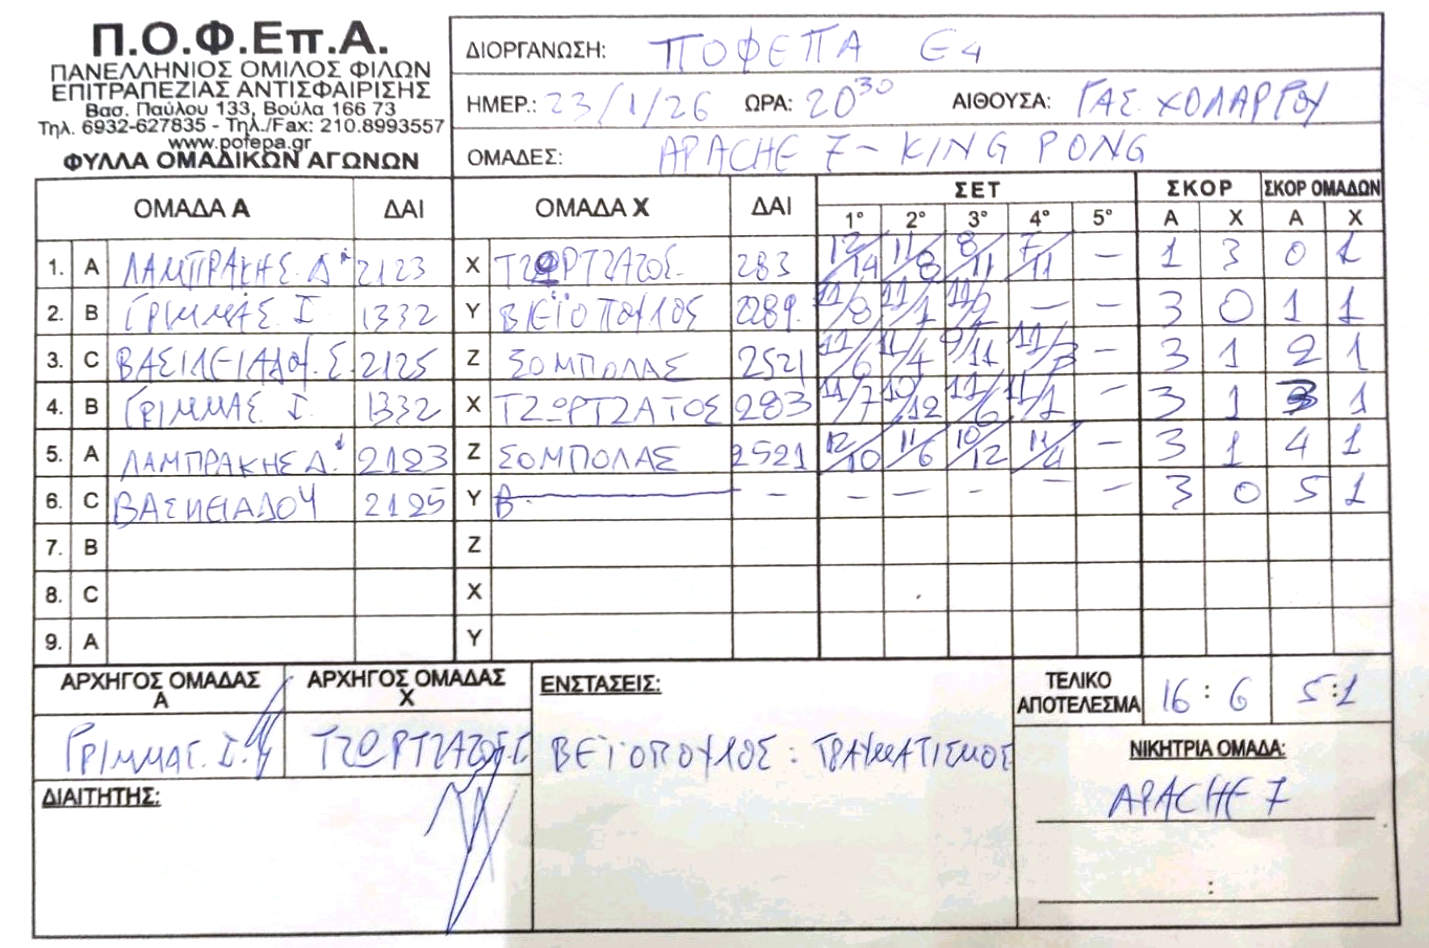 Π.Ο.Φ.Επ.Α.
ΠΑΝΕΛΛΗΝΙΟΣ ΟΜΙΛΟΣ ΦΙΛΩΝ
ΕΠΙΤΡΑΠΕΖΙΑΣ ΑΝΤΙΣΦΑΙΡΙΣΗΣ
Βασ. Παύλου 133, Βούλα 166 73
Τηλ. 6932-627835 - Τηλ./Fax: 210.8993557
www.pofepa.gr
ΦΥΛΛΑ ΟΜΑΔΙΚΩΝ ΑΓΩΝΩΝ
ΔΙΟΡΓΑΝΩΣΗ: ΠΟΦΕΠΑ Ε4
ΗΜΕΡ.: 23/1/26 ΩΡΑ: 20 30 ΑΙΘΟΥΣΑ: ΓΑΣ. ΧΟΛΑΡΓΟΥ
ΟΜΑΔΕΣ: APACHE 7 - KING PONG
ΟΜΑΔΑ Α ΔΑΙ ΟΜΑΔΑ Χ ΔΑΙ ΣΕΤ ΣΚΟΡ ΣΚΟΡ ΟΜΑΔΩΝ
1° 2° 3° 4° 5° Α Χ Α Χ
1. Α ΛΑΜΠΡΑΚΗΣ Δ 2123 Χ ΤΖΩΡΤΖΑΤΟΣ 283 12/14 11/8 8/11 7/11 — 1 3 0 1
2. Β ΓΡΙΜΜΑΣ. Ι 1332 Υ ΒΕΪΟΠΟΥΛΟΣ 2289. 11/8 11/1 11/2 — — 3 0 1 1
3. C ΒΑΣΙΛΕΙΑΔΟΥ. Σ 2125 Ζ ΣΟΜΠΟΛΑΣ 2521 11/6 11/4 9/11 11/3 — 3 1 2 1
4. Β ΓΡΙΜΜΑΣ Ι. 1332 Χ ΤΖΩΡΤΖΑΤΟΣ 283 11/7 10/12 11/6 11/1 — 3 1 3 1
5. Α ΛΑΜΠΡΑΚΗΣ Δ. 2123 Ζ ΣΟΜΠΟΛΑΣ 2521 12/10 11/6 10/12 11/4 — 3 1 4 1
6. C ΒΑΣΙΛΕΙΑΔΟΥ 2125 Υ Β — — — — — — 3 0 5 1
7. Β Ζ
8. C Χ
9. Α Υ
ΑΡΧΗΓΟΣ ΟΜΑΔΑΣ Α ΑΡΧΗΓΟΣ ΟΜΑΔΑΣ Χ
ΓΡΙΜΜΑΣ. Ι. ΤΖΩΡΤΖΑΤΟΣ Γ.
ΔΙΑΙΤΗΤΗΣ:
ΕΝΣΤΑΣΕΙΣ:
ΒΕΪΟΠΟΥΛΟΣ: ΤΡΑΥΜΑΤΙΣΜΟΣ
ΤΕΛΙΚΟ ΑΠΟΤΕΛΕΣΜΑ 16 : 6 5:1
ΝΙΚΗΤΡΙΑ ΟΜΑΔΑ:
APACHE 7
: